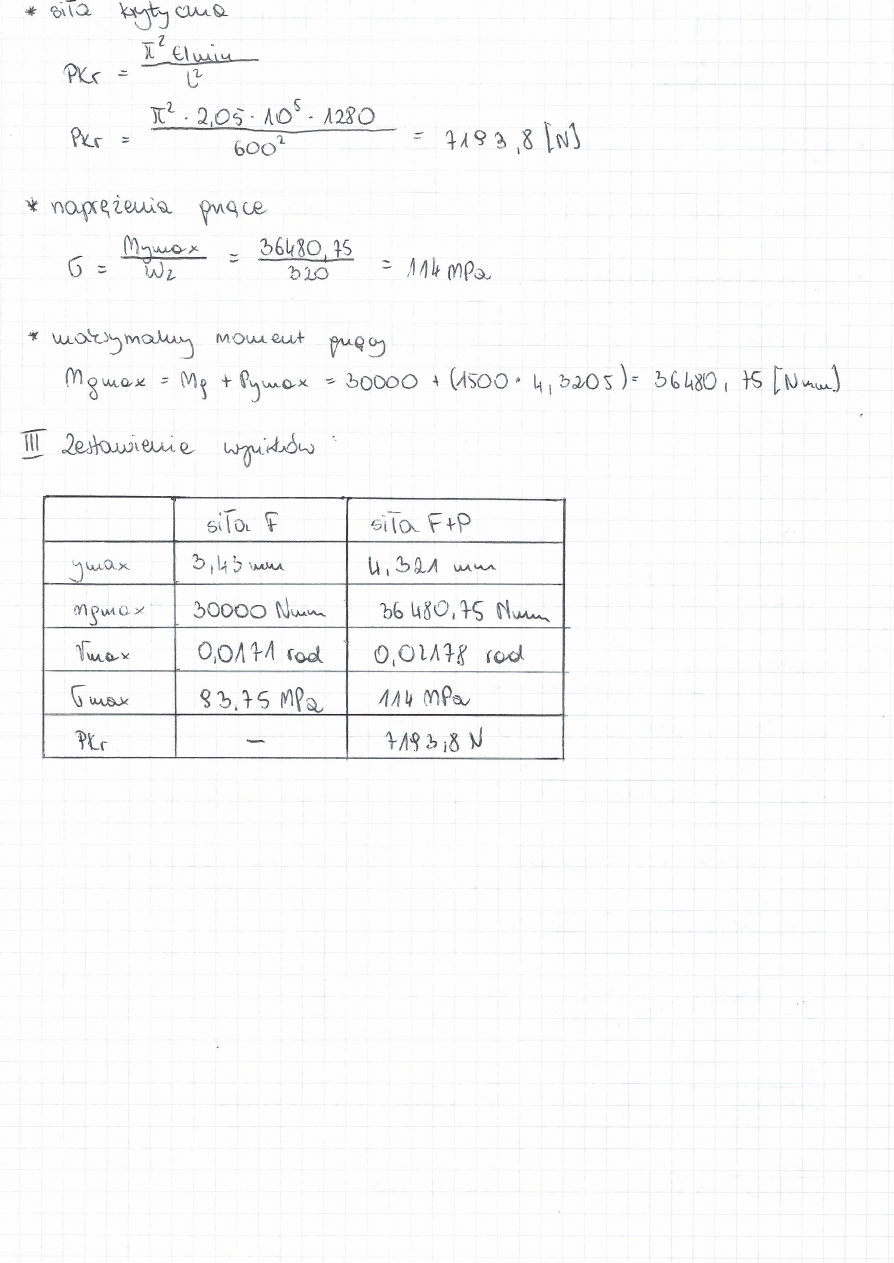 * siła krytyczna
Pkr = π² EImin / l²
Pkr = π² · 2,05 · 10⁵ · 1280 / 600² = 7193,8 [N]
* naprężenia gnące
σ = Mgmax / Wz = 36480,75 / 320 = 114 MPa
* maksymalny moment gnący
Mgmax = Mg + Pymax = 30000 + (1500 · 4,3205) = 36480,75 [Nmm]
III Zestawienie wyników :
siła F siła F+P
ymax 3,43 mm 4,321 mm
Mgmax 30000 Nmm 36480,75 Nmm
max 0,0171 rad 0,02178 rad
σmax 93,75 MPa 114 MPa
Pkr – 7193,8 N